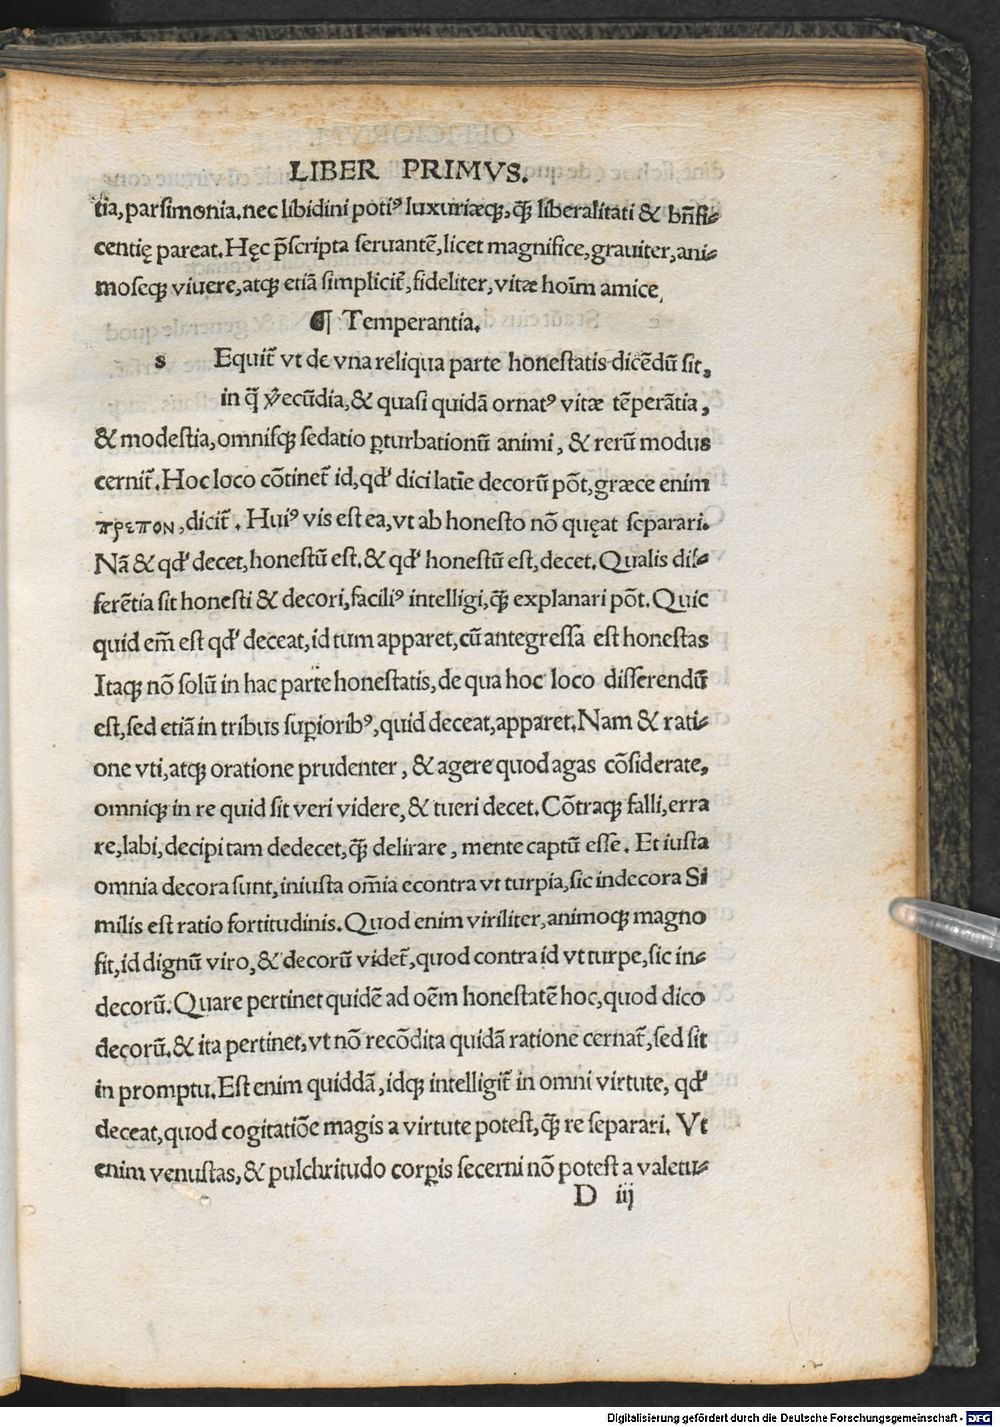 LIBER PRIMVS.
tia, parsimonia. nec libidini poti⁹ luxuriæq;, q̃ꝫ liberalitati & bñfi⸗
centię pareat. Hęc p̄scripta seruantē, licet magnifice, grauiter, ani⸗
moseq; viuere, atq; etiā simplicit̃, fideliter, vitæ hoīm amice,
¶ Temperantia.
s Equit̃ vt de vna reliqua parte honestatis dicēdū sit,
in q̄ v̾ecūdia, & quasi quidā ornat⁹ vitæ tēperātia,
& modestia, omnisq; sedatio ꝑturbationū animi, & rerū modus
cernit̃. Hoc loco cōtinet̃ id, qd' dici latīe decorū pōt, græce enim
πρεπον, dicit̃. Hui⁹ vis est ea, vt ab honesto nō quęat separari.
Nā & qd' decet, honestū est. & qd' honestū est, decet. Qualis dif⸗
ferētia sit honesti & decori, facili⁹ intelligi, q̃ꝫ explanari pōt. Quic
quid em̄ est qd' deceat, id tum apparet, cū antegressa est honestas
Itaq; nō solū in hac parte honestatis, de qua hoc loco disserendū
est, sed etiā in tribus suꝑiorib⁹, quid deceat, apparet. Nam & rati⸗
one vti, atq; oratione prudenter, & agere quod agas cōsiderate,
omniq; in re quid sit veri videre, & tueri decet. Cōtraq; falli, erra
re, labi, decipi tam dedecet, q̃ꝫ delirare, mente captū esse. Et iusta
omnia decora sunt, iniusta om̄ia econtra vt turpia, sic indecora Si
milis est ratio fortitudinis. Quod enim viriliter, animoq; magno
fit, id dignū viro, & decorū videt̃, quod contra id vt turpe, sic in⸗
decorū. Quare pertinet quidē ad oēm honestatē hoc, quod dico
decorū. & ita pertinet, vt nō recōdita quidā ratione cernat̃, sed sit
in promptu. Est enim quiddā, idq; intelligit̃ in omni virtute, qd'
deceat, quod cogitatiōe magis a virtute potest, q̃ꝫ re separari. Vt
enim venustas, & pulchritudo corꝑis secerni nō potest a valetu⸗
D iij
Digitalisierung gefördert durch die Deutsche Forschungsgemeinschaft - DFG